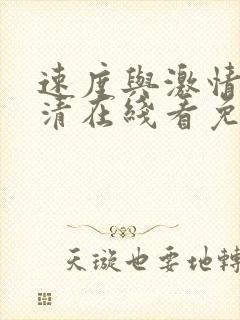 速度與激情
清在綫看免
天璇也要地轉